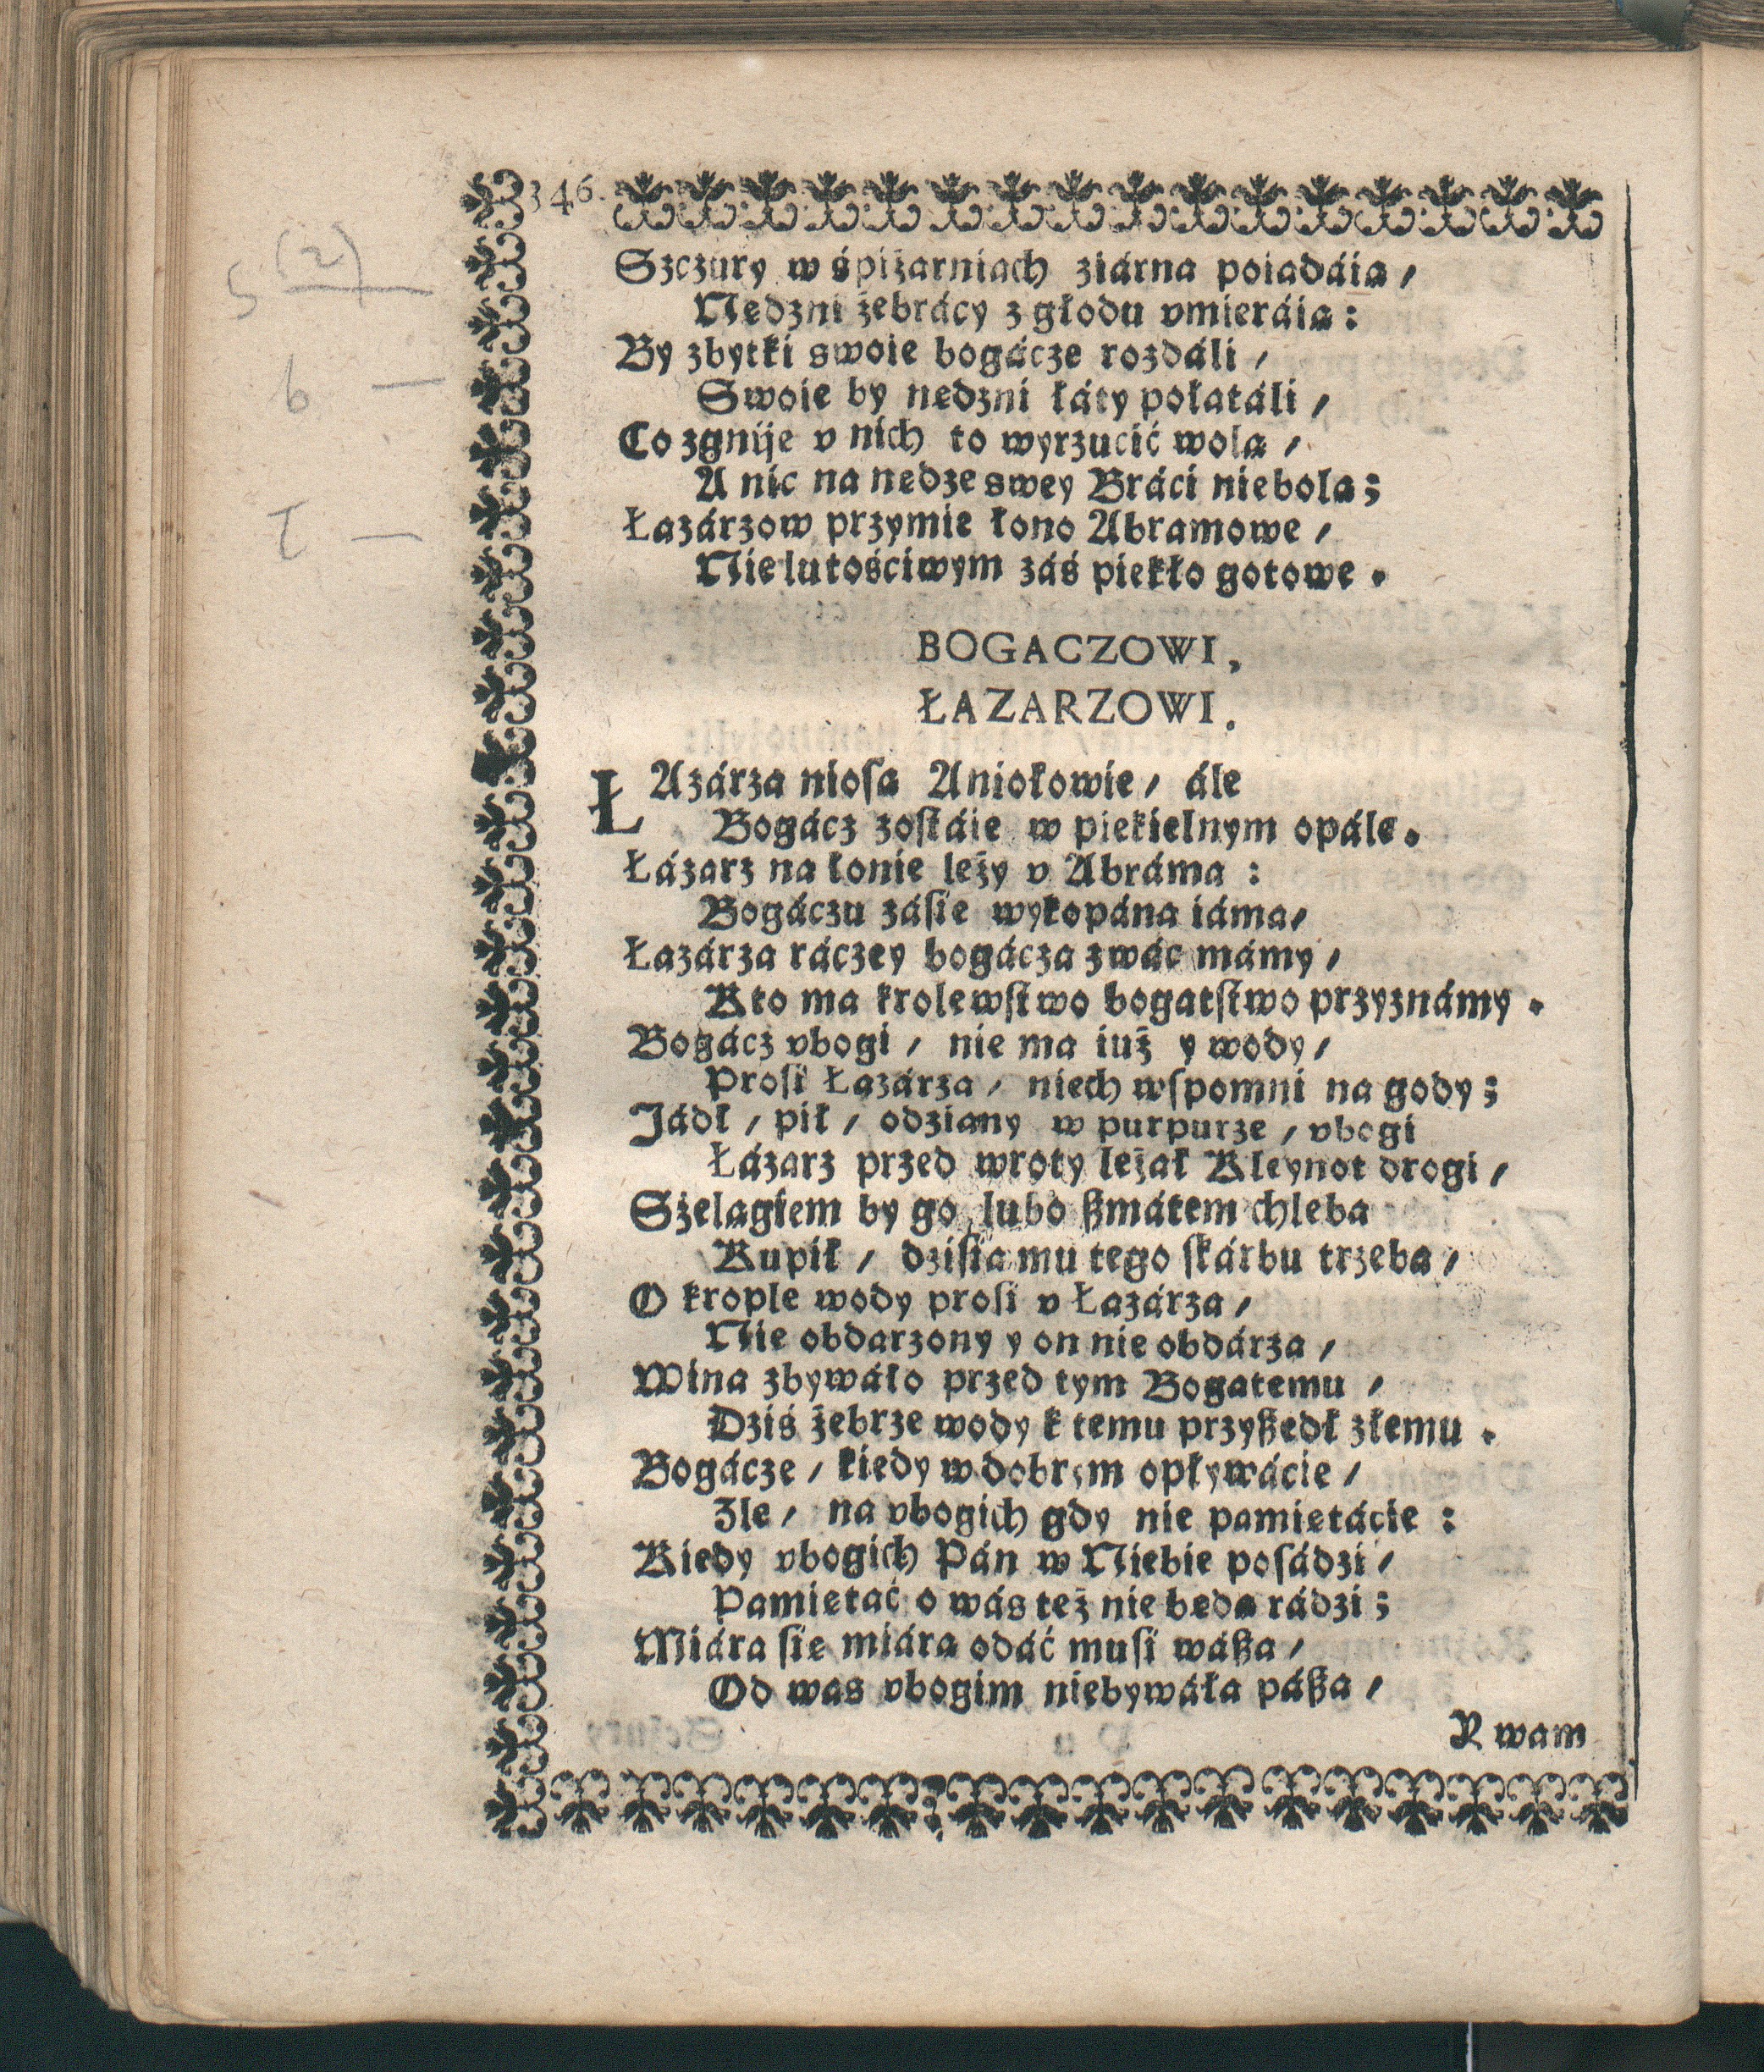 346.
Szczury w śpiżarniach ziárna poiadáią /
Nędzni żebrácy z głodu vmieráią:
By zbytki swoie bogácze rozdáli /
Swoie by nędzni łáty połatáli /
Co zgnije v nich to wyrzucić wolą /
A nic na nędzę swey Bráci niebolą;
Łazárzow przymie łono Abramowe /
Nielutościwym záś piekło gotowe.
BOGACZOWI,
ŁAZARZOWI.
ŁAzárzá niosą Aniołowie / ále
Bogácz zostáie w piekielnym opále.
Łázarz na łonie leży v Abráma:
Bogáczu zásię wykopána iáma /
Łazárzá ráczey bogácza zwác mámy /
Kto ma krolewstwo bogatstwo przyznámy.
Bogácz vbogi / nie ma iuż y wody /
Prosi Łazárza / niech wspomni na gody;
Jádł / pił / odziany w purpurze / vbogi
Łázarz przed wroty leżał Kleynot drogi /
Szelągiem by go lubo ßmátem chleba
Kupił / dzisia mu tego skárbu trzeba /
O krople wody prosi v Łazárza /
Nie obdarzony y on nie obdárza /
Wina zbywáło przed tym Bogatemu /
Dziś żebrze wody k temu przyßedł złemu.
Bogácze / kiedy w dobrym opływácie /
Zle / na vbogich gdy nie pamiętácie:
Kiedy vbogich Pán w Niebie posádzi /
Pamiętać o wás też nie będą rádzi;
Miárą się miárá odáć musi wáßá /
Od was vbogim niebywáła páßa /
Y wam
5 (2)